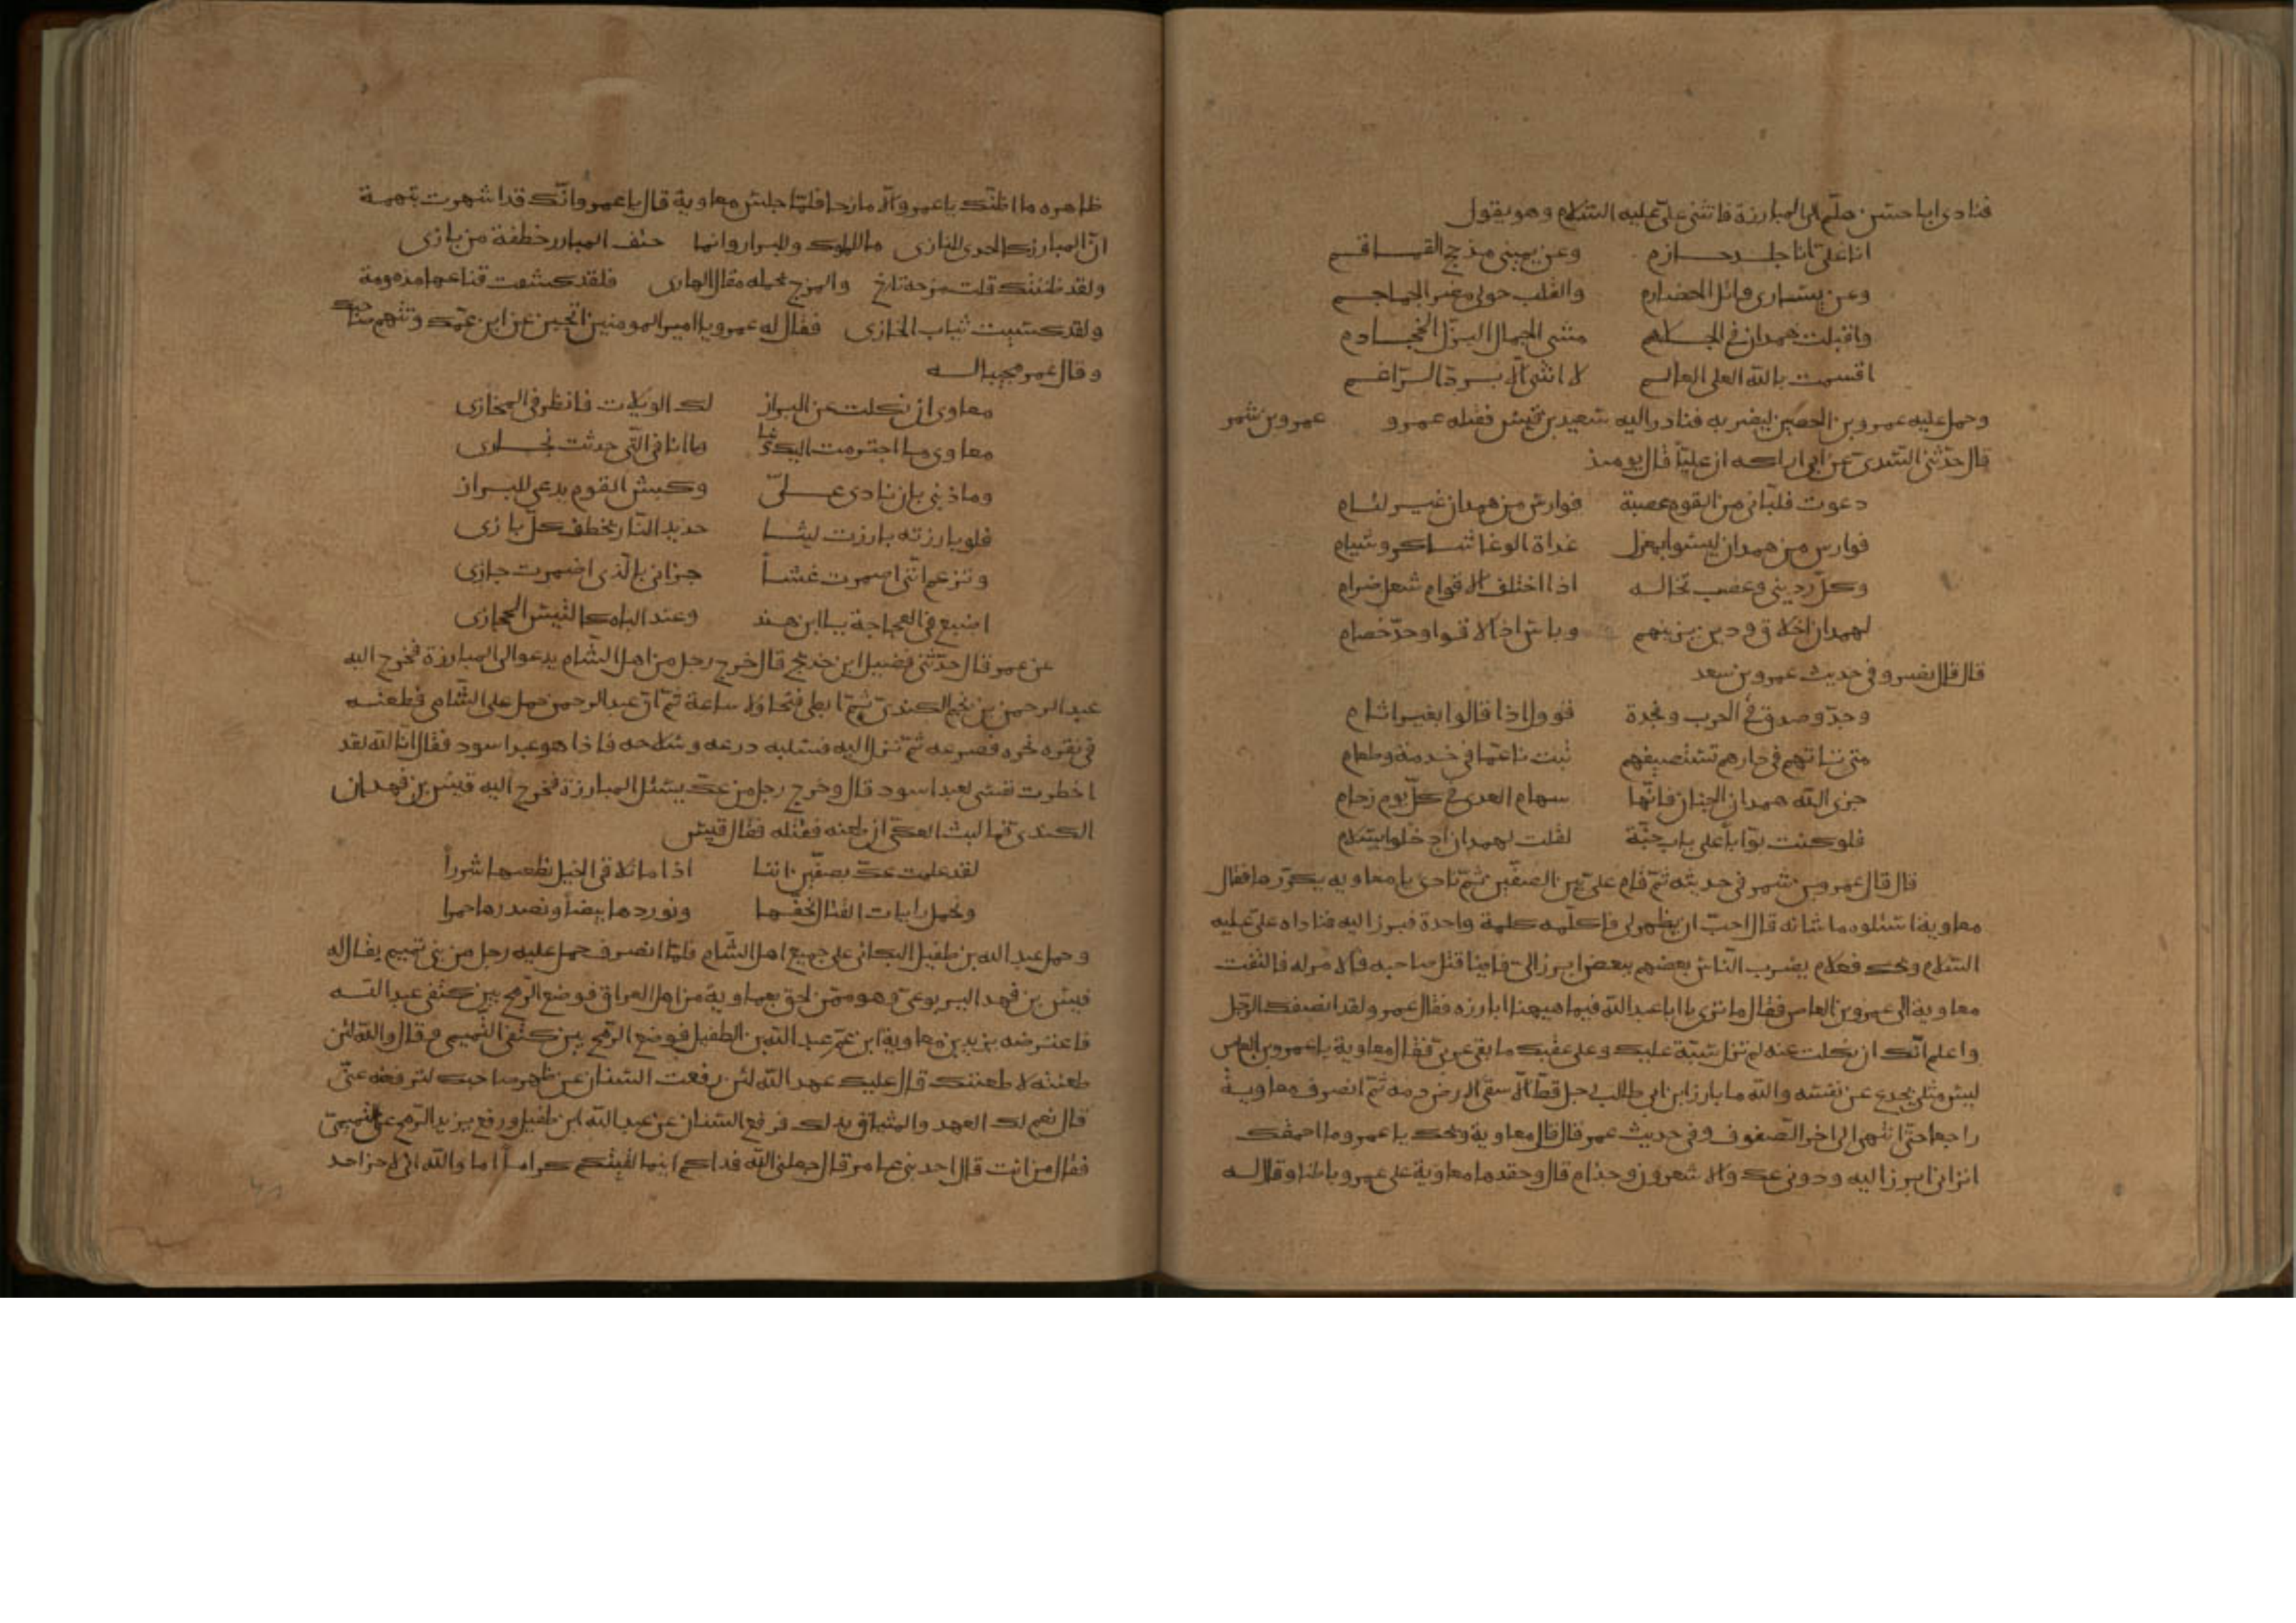 فنادى ابا حسن هلّم الى المبارزة فانثنى علىّ عليه السّلام وهو يقول
انا علىّ انا جلد حازم وعن يمينى مذحج القماقم
وعن يسارى وائل الحضارم والقلب حولى مضر الجماجم
واقبلت همدان فى مشى الجمال البزّل
اقسمت بالله العلى العالم لا انثنى الّا بردّ الرّاغم
وحمل عليه عمرو بن الحصين ليضربه فنادر اليه سعيد بن قيس فقتله عمرو عمرو بن شمر
قال حدّثنى السّدى عن ابى اراكه ان عليّا قال يومئذ
دعوت فلبّانى من القوم عصبة فوارس من همدان غير لئام
فوارس من همدان ليسوا بعزل غداة الوغا شاكر وشبام
وكلّ ردينى وعضب تخاله اذا اختلف الاقوام شعل ضرام
لهمدان اخلاق ودين يزينهم وباس اذا لاقوا وحدّ خصام
قال قال نصر وفى حديث عمرو بن سعد
وجدّ وصدق فى الحرب ونجدة وقول اذا قالوا بغير اثام
متى تاتهم فى دارهم تستضيفهم تبت ناعما فى خدمة وطعام
جزى الله همدان الجنان فانّها سهام العدى فى كلّ يوم زحام
فلو كنت بوّابا على باب جنّة لقلت لهمدان ادخلوا بسلام
قال قال عمرو بن شمر فى حديثه ثمّ قام علىّ بين الصفّين ثمّ نادى يا معاويه يكرّرها فقال
معاوية اسئلوه ما شانه قال احبّ ان يظهر لى فاكلّمه كلمة واحدة فبرز اليه فناداه علىّ عليه
السّلام ويحك فعلام يضرب النّاس بعضهم ببعض ابرز الىّ فاينا قتل صاحبه فالامر له فالتفت
معاوية الى عمرو بن العاص فقال ما ترى يا ابا عبد الله فيما هيهنا ابارزه فقال عمرو لقد انصفك الرّجل
واعلم انّك ان نكلت عنه لم تزل سبّة عليك وعلى عقبك ما بقى عربىّ فقال معاوية يا عمرو بن العاص
ليس مثلى يخدع عن نفسه والله ما بارز ابن ابى طالب رجل قطّ الّا سقى الارض دمه ثمّ انصرف معاوية
راجعا حتّى انتهى الى اخر الصّفوف وفى حديث عمر قال قال معاوية ويحك يا عمرو ما احمقك
اترانى ابرز اليه ودونى عك والاشعرون وجذام قال وحقدها معاوية على عمرو باطنا وقال له
ظاهره ما اظنّك يا عمرو الّا مازحا فلمّا جلس معاوية قال يا عمرو انّك قد اشهرت بتهمة
انّ المبارز كالجدى للنازى ما للملوك وللبراز وانما حتف المبارز خطفة من بازى
ولقد ظننتك قلت مزحة تارح والمزح يحمله مقال الهازى فلقد كشفت قناعها مذمومة
ولقد كسيت ثياب الخازى فقال له عمرو يا امير المومنين اتجبن عن ابن عمّك وتتهم
وقال عمر مجيبا له
معاوى ان نكلت عن البراز لك الويلات فانظر فى المخازى
معاوى ما اجترمت اليك وما انا فى الّتى حدثت بخازى
وما ذنبى بان نادى علىّ وكبش القوم يدعى للبراز
فلو بارزته بارزت ليثا حديد النّاب يخطف كلّ بازى
وتزعم انّنى اضمرت غشّاً جزانى بالّذى اضمرت جازى
اضبع فى العجاجة يا ابن هند وعند الباه كالتيس الحجازى
عن عمر قال حدّثنى فضيل ابن خديج قال خرج رجل من اهل الشّام يدعو الى المبارزة فخرج اليه
عبد الرحمن بن نجم الكندىّ ثمّ فتجاولا ساعة ثمّ انّ عبد الرحمن حمل على الشّامى فطعنه
فى نقره نحره فصرعه ثمّ نزل اليه فسلبه درعه وسلاحه فاذا هو عبد اسود فقال انا لله لقد
اخطرت نفسى لعبد اسود قال وخرج رجل من عك يسئل المبارزة فخرج اليه قيس بن فهدان
الكندىّ فما لبث العكىّ ان طعنه فقتله فقال قيس
لقد علمت عكّ بصفّين اننا اذا ما تلاقى الخيل نطعنها شزراً
ونحمل رايات القتال بحقّها ونوردها بيضاً ونصدرها حمرا
وحمل عبد الله بن طفيل البكائى على جميع اهل الشّام فلمّا انصرف حمل عليه رجل من بنى تميم يقال له
قيس بن فهد اليربوعىّ وهو ممّن لحق بمعاوية من اهل العراق فوضع الرّمح بين كتفى عبد الله
فاعترضه يزيد بن معاوية ابن عمّ عبد الله بن الطفيل فوضع الرّمح بين كتفى التّميمى وقال والله لئن
طعنته لاطعننك قال عليك عهد الله لئن رفعت السّنان عن ظهر صاحبك لترفعنه عنّى
قال نعم لك العهد والميثاق بذلك فرفع السّنان عن عبد الله ابن طفيل ورفع يزيد الرّمح عن التّميمىّ
فقال من انت قال احد بنى عامر قال جعلنى الله فداكم اينما لقيتكم كراما اما والله انى لاخر احد